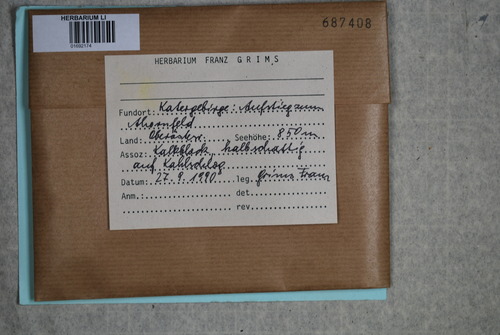 HERBARIUM LI
01692174
687408
HERBARIUM FRANZ GRIMS
Fundort: Katergebirge: Aufstieg zum
Ahornfeld
Land: Oberösterr. Seehöhe: 850 m
Assoz: Kalkblock halbschattig
auf Kahlschlag
Datum: 27.9.1990 leg. Grims Franz
Anm.: det.
rev.